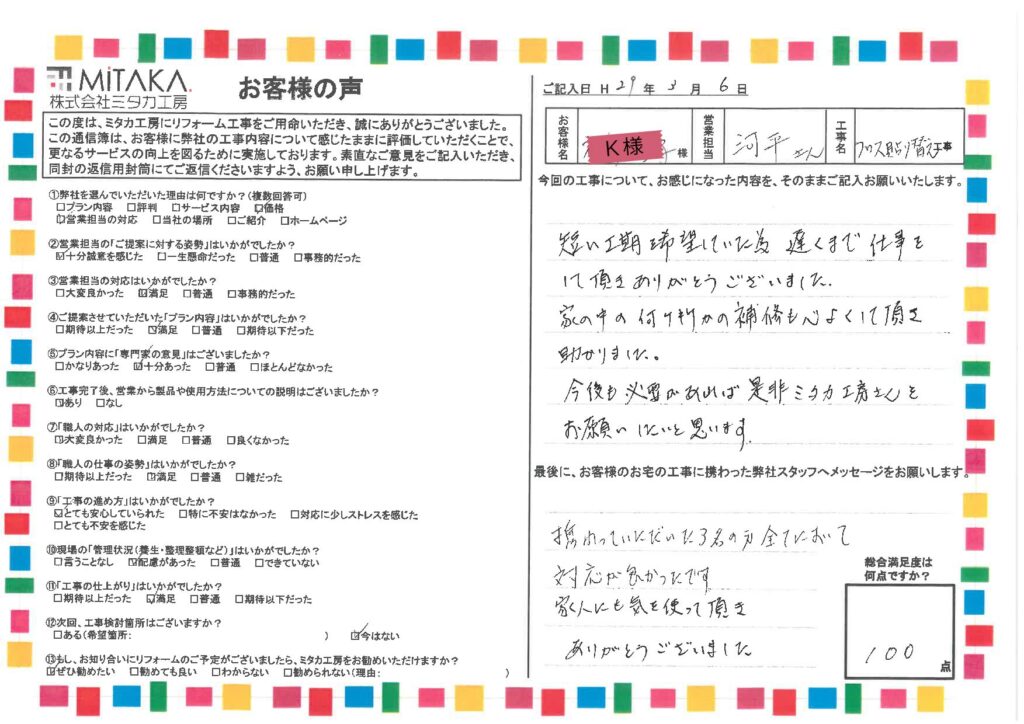 MiTAKA.
株式会社ミタカ工房
お客様の声
この度は、ミタカ工房にリフォーム工事をご用命いただき、誠にありがとうございました。
この通信簿は、お客様に弊社の工事内容について感じたままに評価していただくことで、
更なるサービスの向上を図るために実施しております。素直なご意見をご記入いただき、
同封の返信用封筒にてご返信くださいますよう、お願い申し上げます。
①弊社を選んでいただいた理由は何ですか？（複数回答可）
□プラン内容 □評判 □サービス内容 ☑価格
☑営業担当の対応 □当社の場所 □ご紹介 □ホームページ
②営業担当の「ご提案に対する姿勢」はいかがでしたか？
☑十分誠意を感じた □一生懸命だった □普通 □事務的だった
③営業担当の対応はいかがでしたか？
□大変良かった ☑満足 □普通 □事務的だった
④ご提案させていただいた「プラン内容」はいかがでしたか？
□期待以上だった ☑満足 □普通 □期待以下だった
⑤プラン内容に「専門家の意見」はございましたか？
□かなりあった ☑十分あった □普通 □ほとんどなかった
⑥工事完了後、営業から製品や使用方法についての説明はございましたか？
☑あり □なし
⑦「職人の対応」はいかがでしたか？
☑大変良かった □満足 □普通 □良くなかった
⑧「職人の仕事の姿勢」はいかがでしたか？
□期待以上だった ☑満足 □普通 □雑だった
⑨「工事の進め方」はいかがでしたか？
☑とても安心していられた □特に不安はなかった □対応に少しストレスを感じた
□とても不安を感じた
⑩現場の「管理状況（養生・整理整頓など）」はいかがでしたか？
□言うことなし ☑配慮があった □普通 □できていない
⑪「工事の仕上がり」はいかがでしたか？
□期待以上だった ☑満足 □普通 □期待以下だった
⑫次回、工事検討箇所はございますか？
□ある（希望箇所： ） ☑今はない
⑬もし、お知り合いにリフォームのご予定がございましたら、ミタカ工房をお勧めいただけますか？
☑ぜひ勧めたい □勧めても良い □わからない □勧められない（理由： ）
ご記入日 H 29 年 3 月 6 日
お客様名 K様 様 営業担当 河平さん 工事名 クロス貼り替え工事
今回の工事について、お感じになった内容を、そのままご記入お願いいたします。
短い工期を希望していた為 遅くまで仕事を
して頂きありがとうございました。
家の中の何ヶ所かの補修も心よくして頂き
助かりました。
今後も必要があれば是非ミタカ工房さんを
お願いしたいと思います。
最後に、お客様のお宅の工事に携わった弊社スタッフへメッセージをお願いします。
携わっていただいた3名の方全てにおいて
対応が良かったです
家人にも気を使って頂き
ありがとうございました
総合満足度は
何点ですか？
100
点